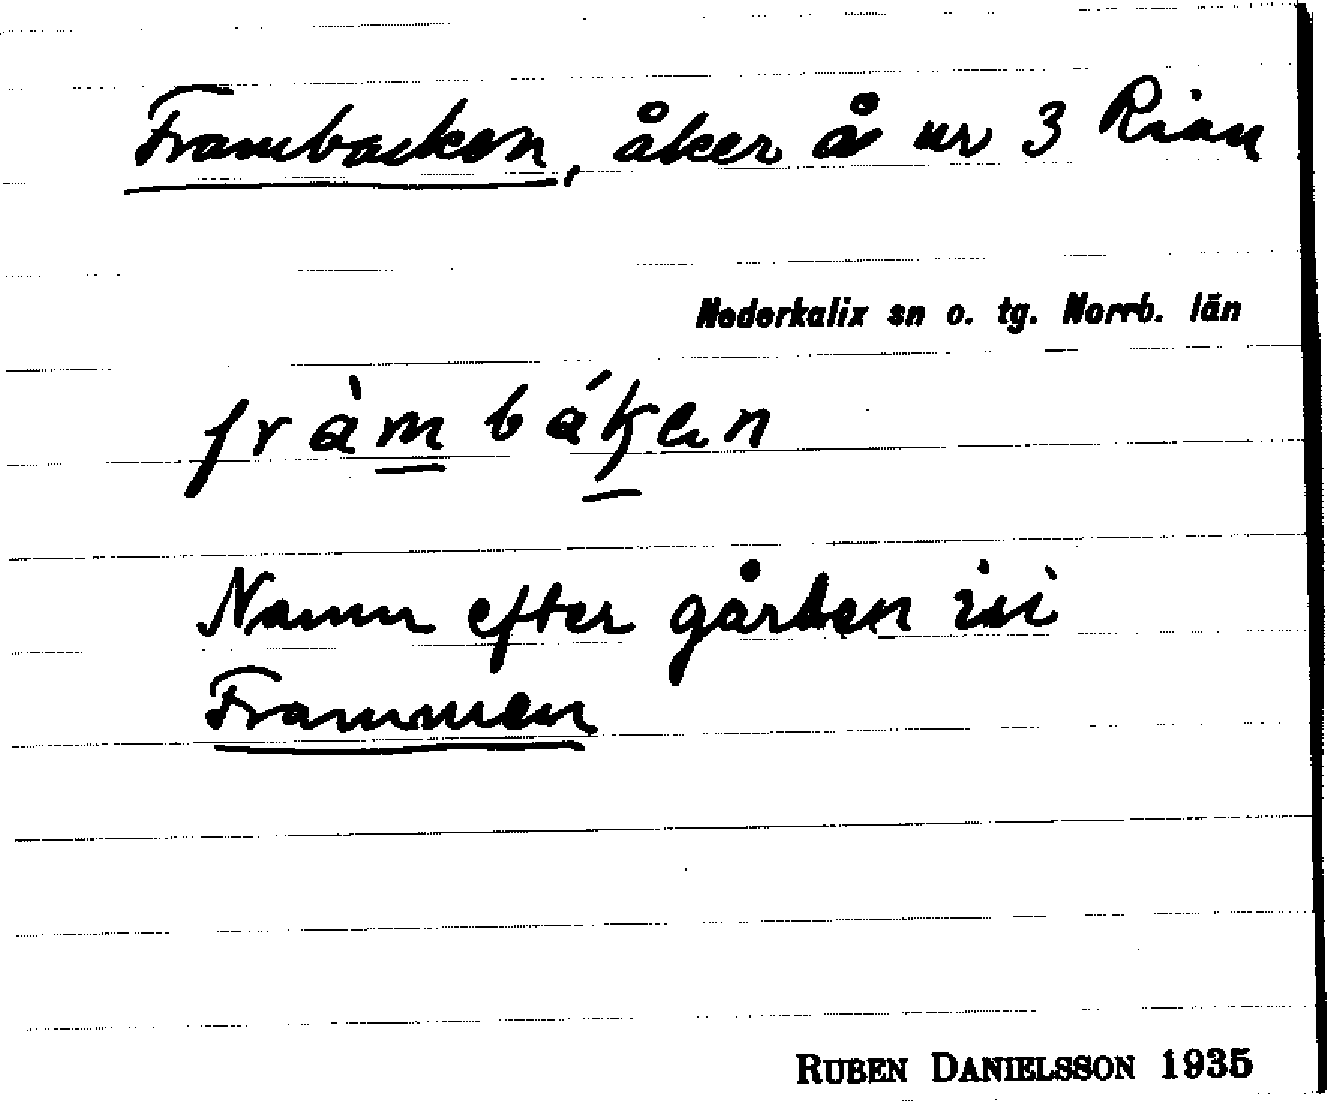 Frambacken, åker å nr 3 Rian
Nederkalix sn o. tg. Norrb. län
fràm báken
Namn efter gården ini
Frammen
RUBEN DANIELSSON 1935